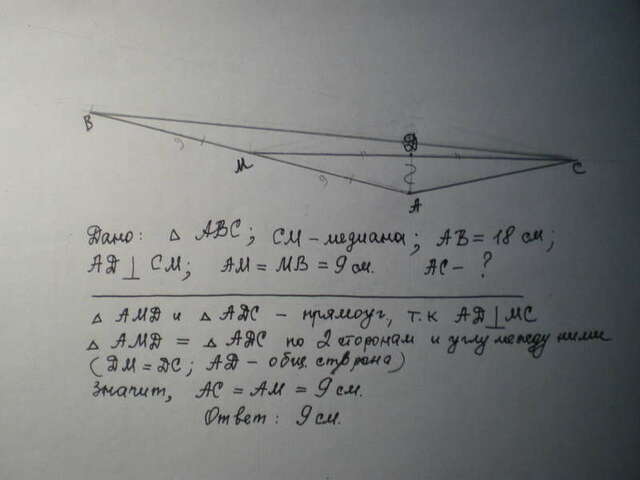 B
D
9
M
C
9
A
Дано: △ ABC; CM – медиана; AB = 18 см;
AD ⊥ CM; AM = MB = 9 см. AC – ?
△ AMD и △ ADC – прямоуг, т.к AD ⊥ MC
△ AMD = △ ADC по 2 сторонам и углу между ними
(DM = DC; AD – общ. сторона)
Значит, AC = AM = 9 см.
Ответ: 9 см.